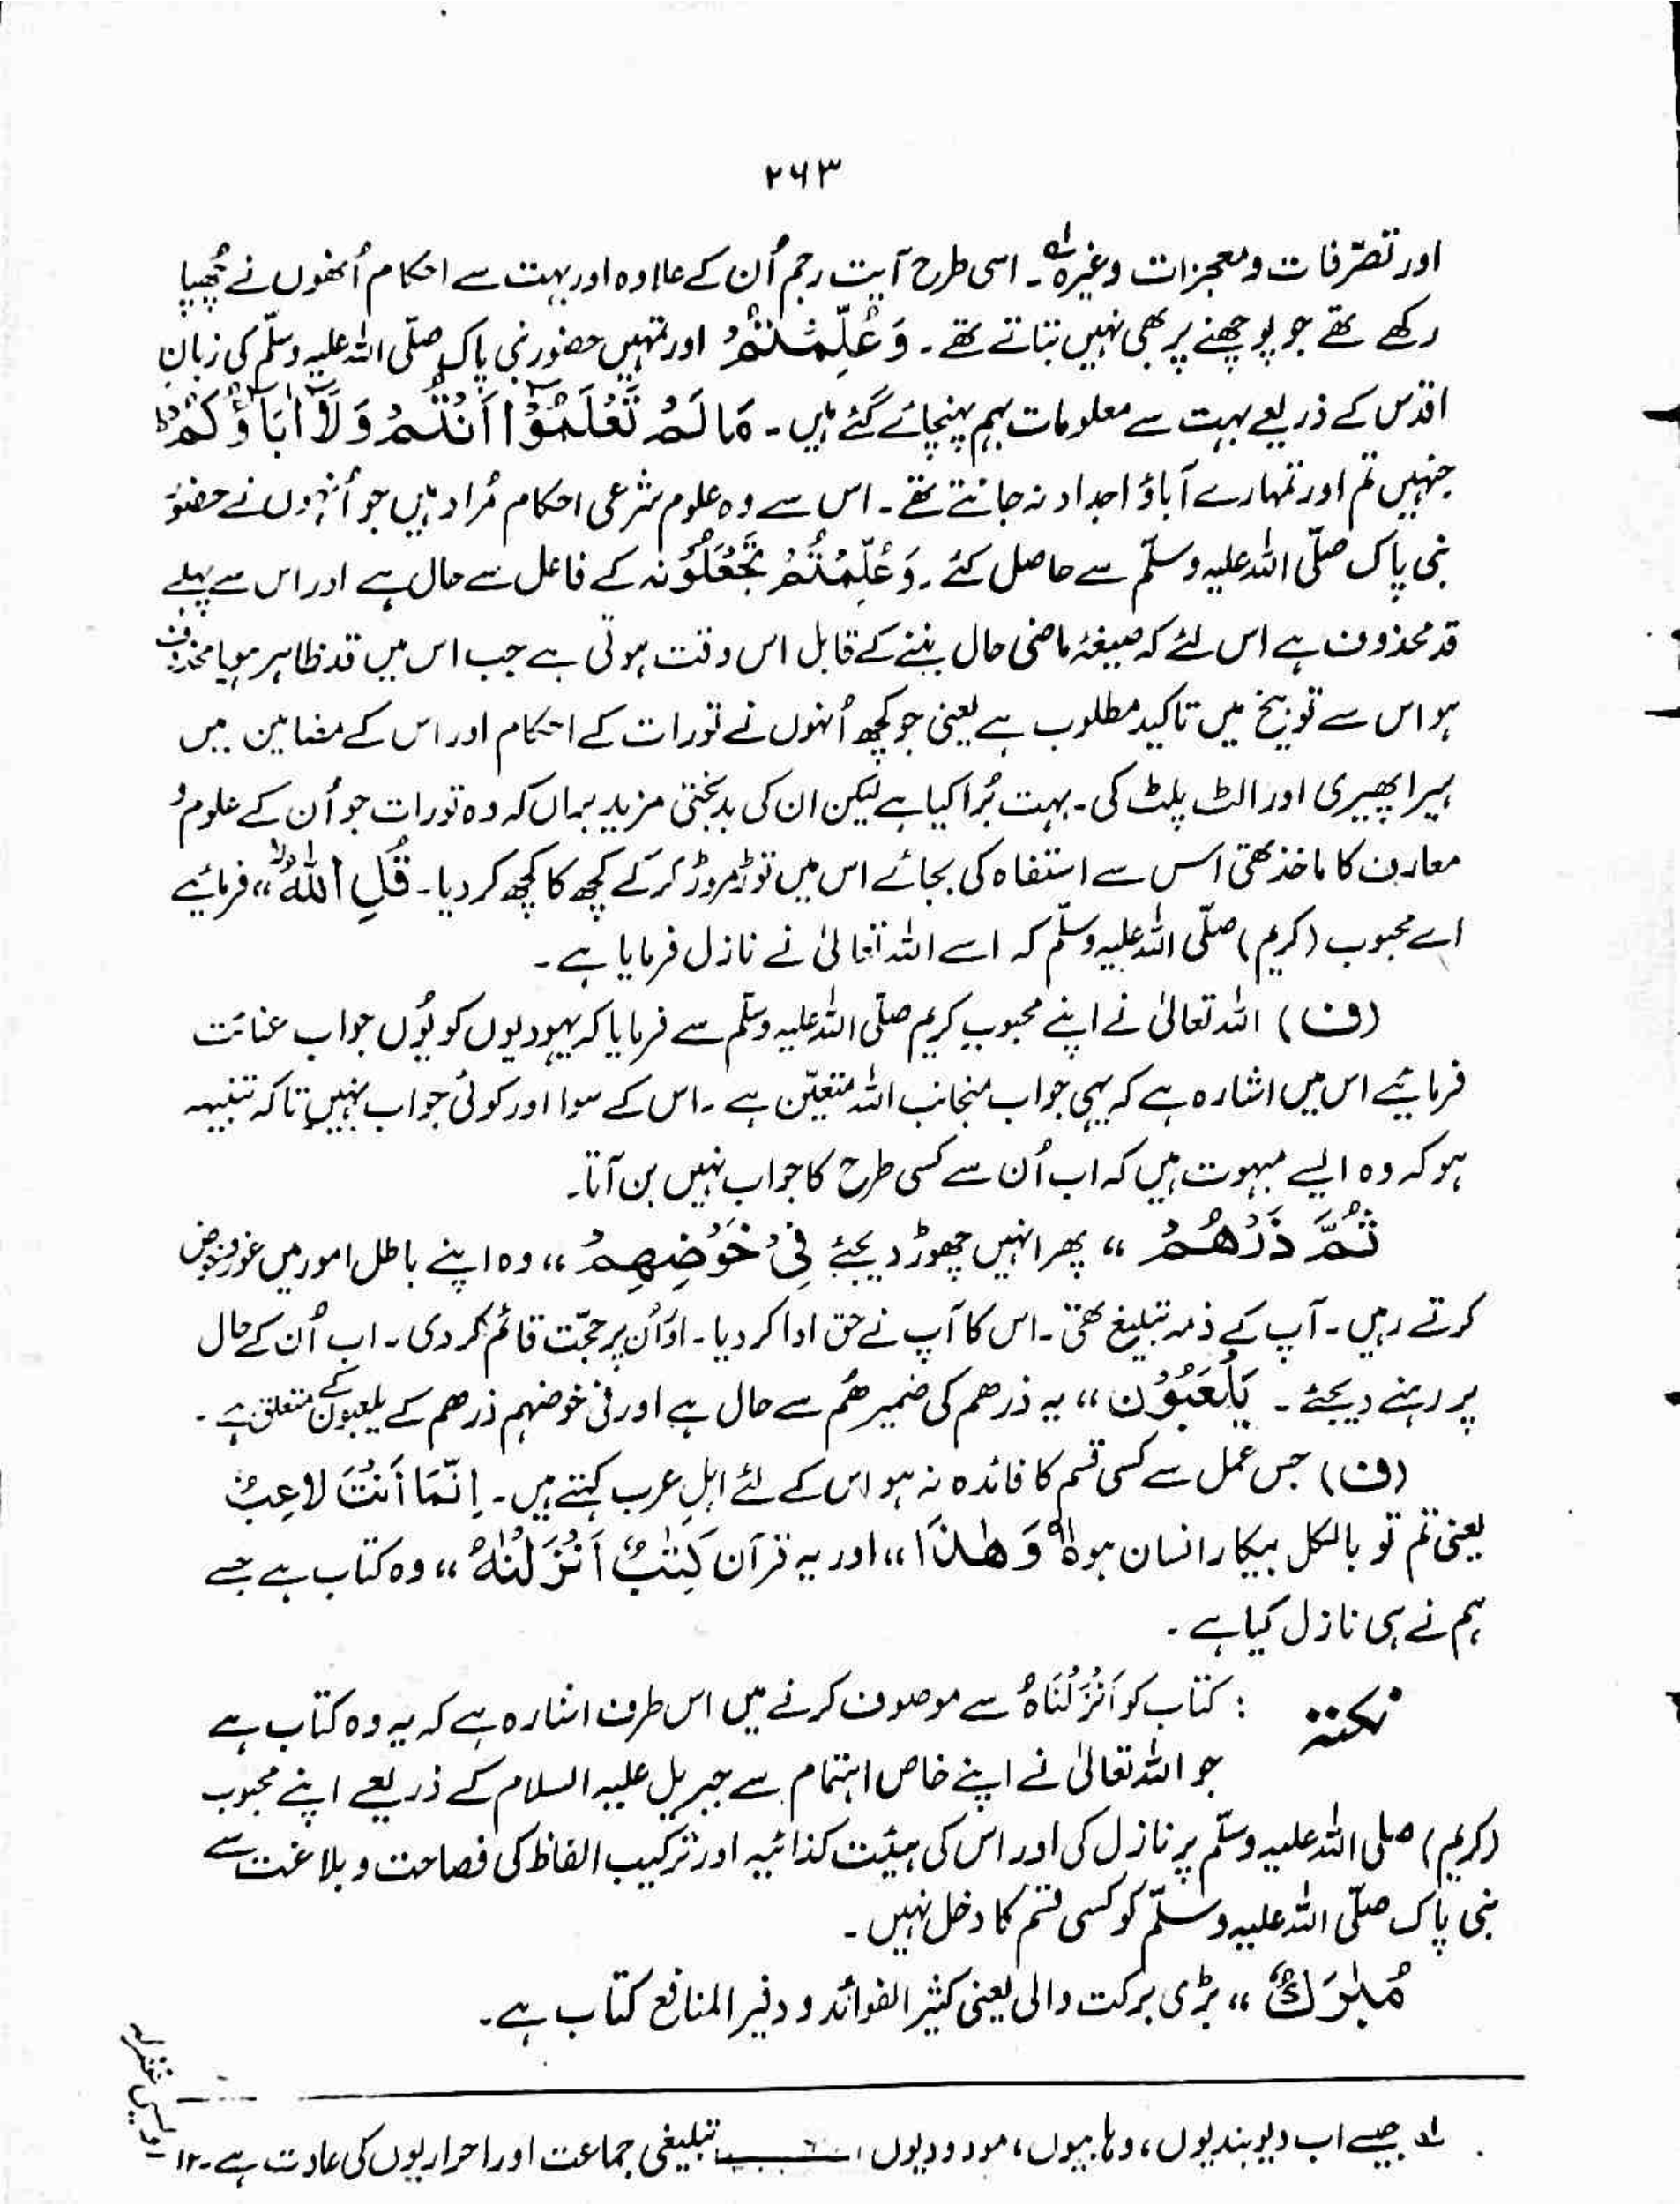 ۲۶۳
اور تصرّفات و معجزات وغیرہ لہ۔ اسی طرح آیت رجم اُن کے علاوہ اور بہت سے احکام اُنھوں نے چُھپا
رکھے تھے جو پوچھنے پر بھی نہیں بتاتے تھے۔ وَعُلِّمْتُمْ اور تمہیں حضور نبی پاک صلّی اللہ علیہ وسلّم کی زبانِ
اقدس کے ذریعے بہت سے معلومات بہم پہنچائے گئے ہیں۔ مَا لَمْ تَعْلَمُوْٓا اَنْتُمْ وَلَآ اٰبَآؤُكُمْ ط
جنہیں تم اور تمہارے آباؤ اجداد نہ جانتے تھے۔ اس سے وہ علوم شرعی احکام مُراد ہیں جو اُنہوں نے حضور
نبی پاک صلّی اللہ علیہ وسلّم سے حاصل کئے۔ وَعُلِّمْتُمْ تَجْعَلُوْنَہ کے فاعل سے حال ہے اور اس سے پہلے
قد محذوف ہے اس لئے کہ صیغۂ ماضی حال بننے کے قابل اس وقت ہوتی ہے جب اس میں قد ظاہر ہو یا محذوف
ہو اس سے توبیخ میں تاکید مطلوب ہے یعنی جو کچھ اُنہوں نے تورات کے احکام اور اس کے مضامین میں
ہیرا پھیری اور الٹ پلٹ کی۔ بہت بُرا کیا ہے لیکن ان کی بدبختی مزید براں کہ وہ تورات جو اُن کے علوم و
معارف کا ماخذ تھی اس سے استفاہ کی بجائے اس میں توڑ مروڑ کر کے کچھ کا کچھ کر دیا۔ قُلِ اللّٰهُ لا ،، فرمائیے
اے محبوب (کریم) صلّی اللہ علیہ وسلّم کہ اسے اللہ تعالیٰ نے نازل فرمایا ہے۔
(ف) اللہ تعالیٰ نے اپنے محبوبِ کریم صلّی اللہ علیہ وسلّم سے فرمایا کہ یہودیوں کو یُوں جواب عنائت
فرمائیے اس میں اشارہ ہے کہ یہی جواب منجانب اللہ متعیّن ہے۔ اس کے سوا اور کوئی جواب نہیں تاکہ تنبیہہ
ہو کہ وہ ایسے مبہوت ہیں کہ اب اُن سے کسی طرح کا جواب نہیں بن آتا۔
ثُمَّ ذَرْهُمْ ،، پھر انہیں چھوڑ دیجئے فِیْ خَوْضِهِمْ ،، وہ اپنے باطل امور میں غور و خوض
کرتے رہیں۔ آپ کے ذمہ تبلیغ تھی۔ اس کا آپ نے حق ادا کر دیا۔ اور اُن پر حجّت قائم کر دی۔ اب اُن کے حال
پر رہنے دیجئے۔ يَلْعَبُوْن ،، یہ ذرھم کی ضمیر ھُم سے حال ہے اور فی خوضہم ذرھم کے یلعبون کے متعلق ہے۔
(ف) جس عمل سے کسی قسم کا فائدہ نہ ہو اس کے لئے اہلِ عرب کہتے ہیں۔ اِنَّمَا اَنْتَ لَاعِبٌ
یعنی تم تو بالکل بیکار انسان ہو وَهٰذَا ،، اور یہ قرآن كِتٰبٌ اَنْزَلْنٰهُ ،، وہ کتاب ہے جسے
ہم نے ہی نازل کیا ہے۔
نکتہ : کتاب کو اَنْزَلْنَاهُ سے موصوف کرنے میں اس طرف اشارہ ہے کہ یہ وہ کتاب ہے
جو اللہ تعالیٰ نے اپنے خاص اہتمام سے جبریل علیہ السلام کے ذریعے اپنے محبوب
(کریم) صلی اللہ علیہ وسلّم پر نازل کی اور اس کی ہیئت کذائیہ اور ترکیب الفاظ کی فصاحت و بلاغت سے
نبی پاک صلّی اللہ علیہ وسلّم کو کسی قسم کا دخل نہیں۔
مُبٰرَكٌ ،، بڑی برکت والی یعنی کثیر الفوائد و وفیر المنافع کتاب ہے۔
لہ جیسے اب دیوبندیوں، وہابیوں، مودودیوں، تبلیغی جماعت اور احراریوں کی عادت ہے۔ ۱۲۔
اویسی غفرلہ